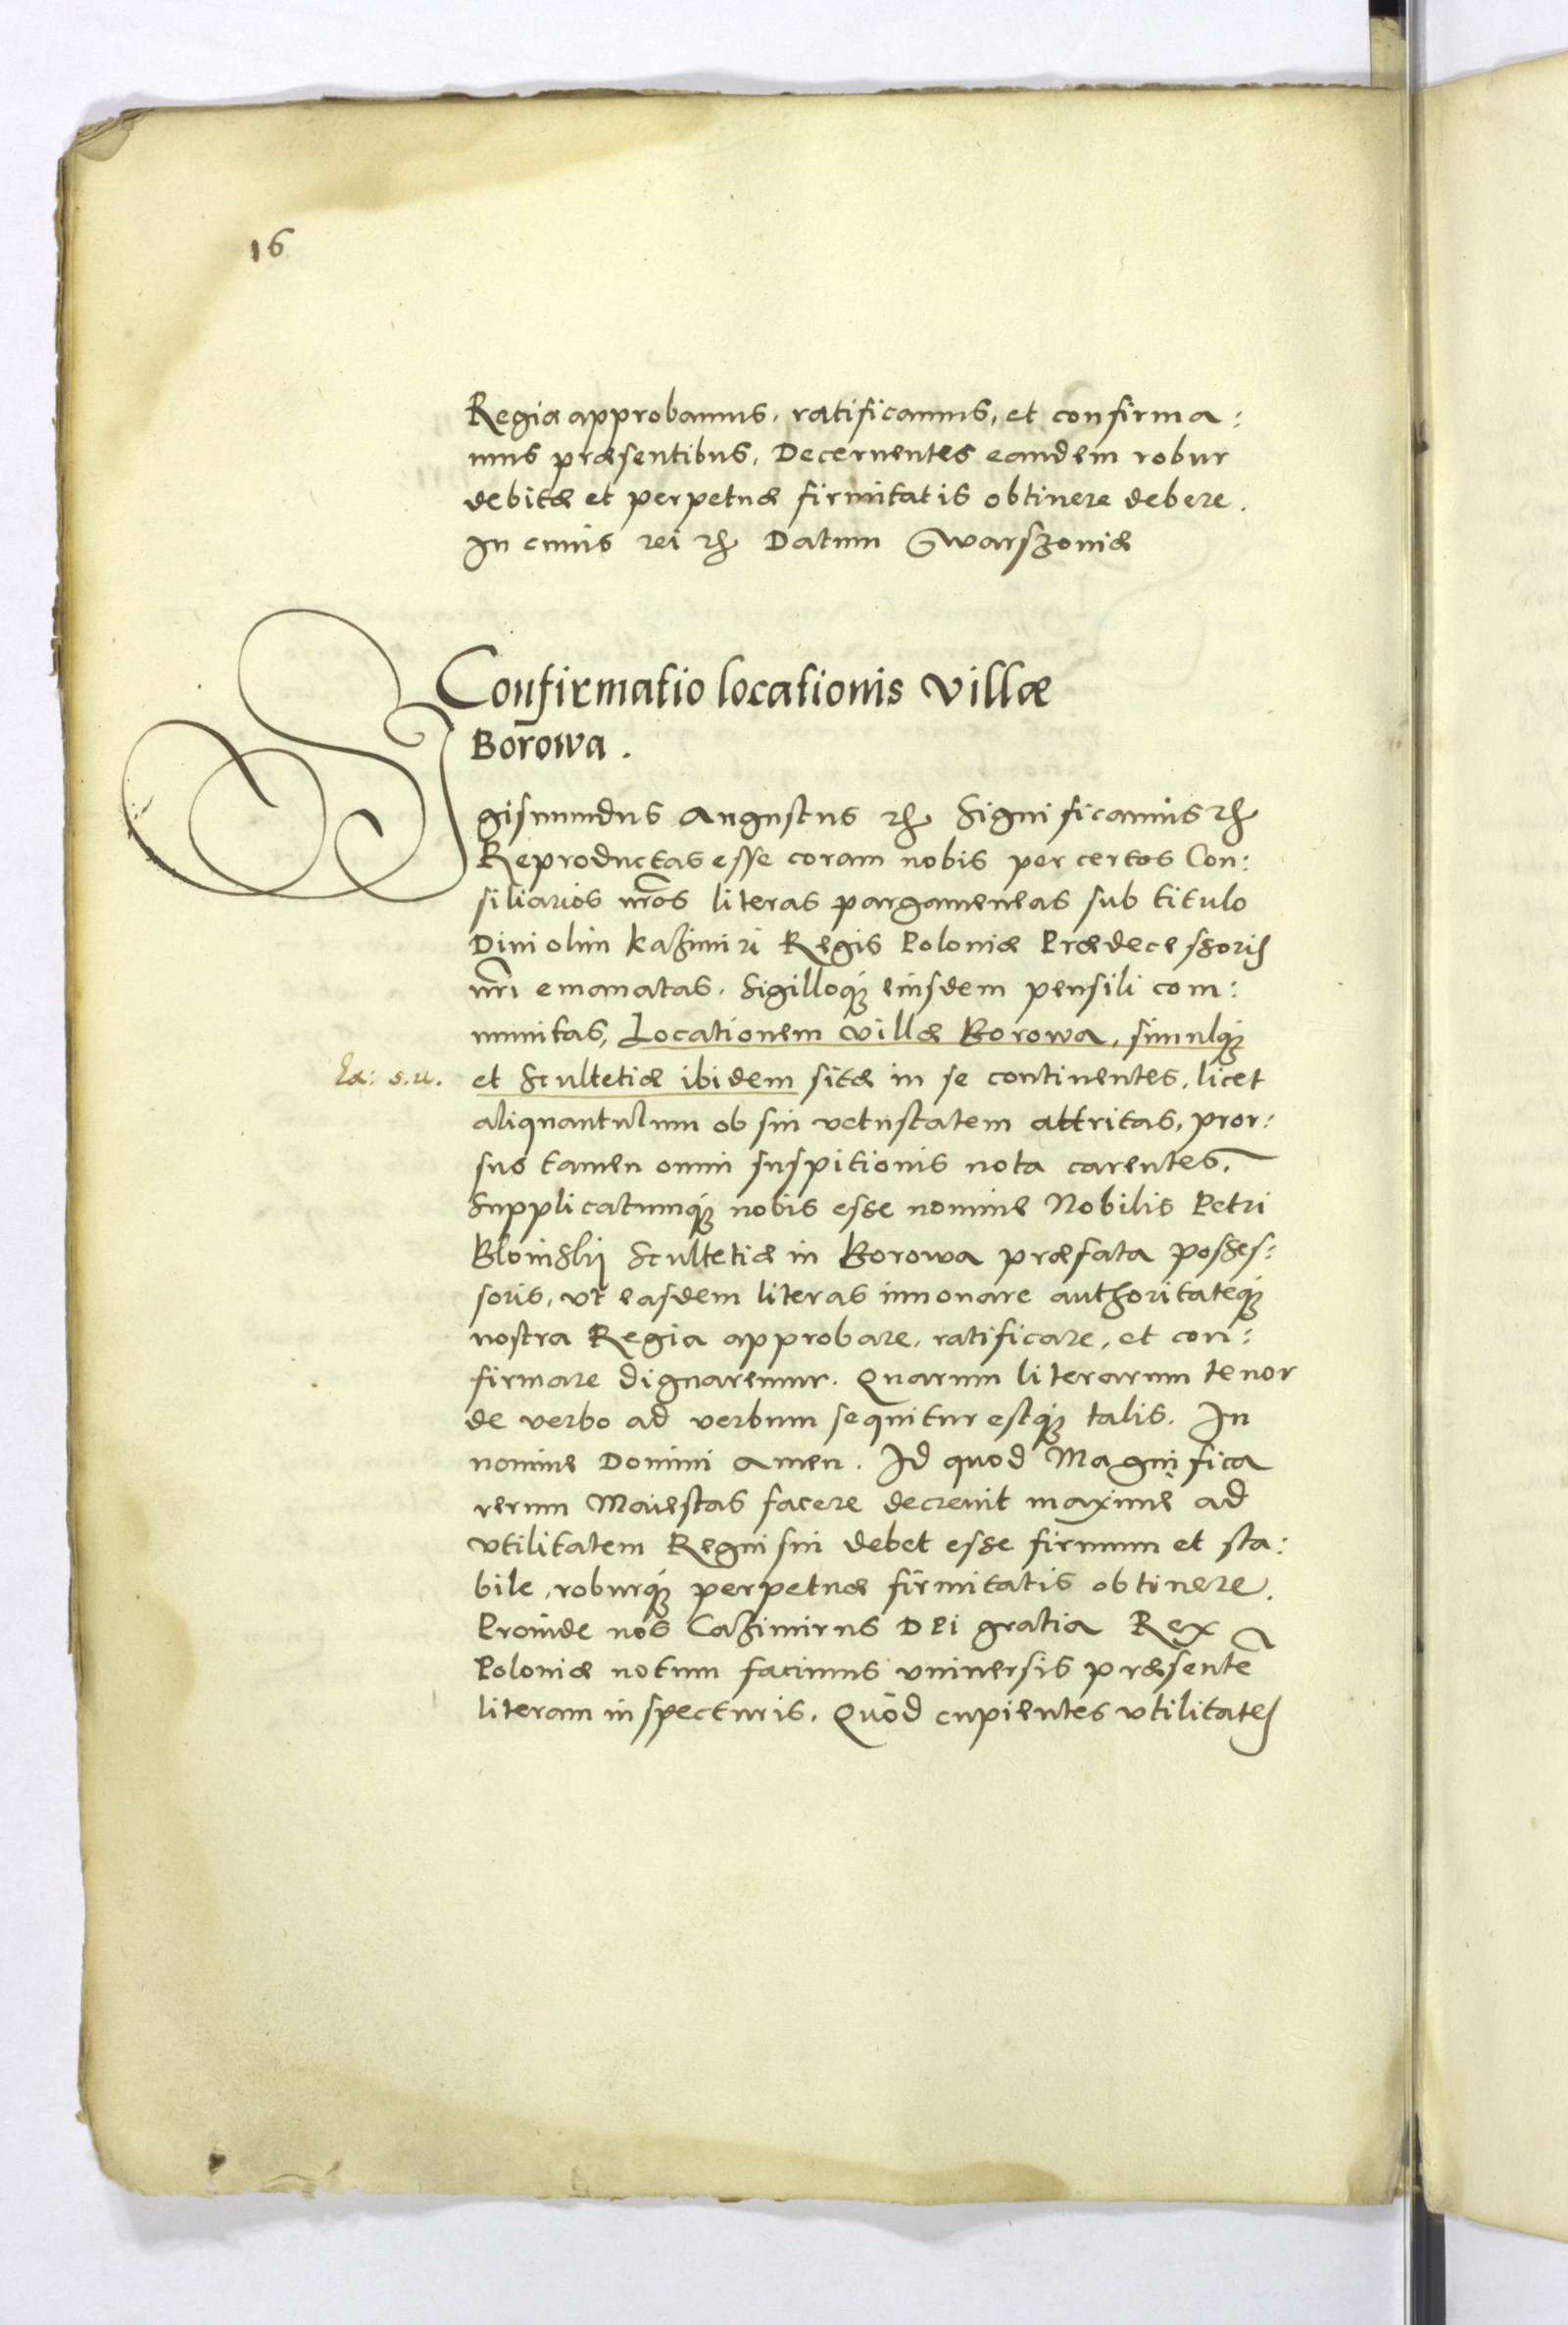 16
Regia approbamus, ratificamus, et confirma:
mus præsentibus, Decernentes eandem robur
debitæ et perpetuæ firmitatis obtinere debere.
In cuius rei &c. Datum Warszoviæ
Confirmatio locationis villæ
Borowa.
Sigismundus Augustus &c. Significamus &c.
Reproductas esse coram nobis per certos Con:
siliarios nr̃os literas pargameneas sub titulo
Divi olim Kazimiri Regis Poloniæ Prædecessoris
nr̃i emanatas, Sigilloq́ue eiusdem pensili com:
munitas, Locationem villæ Borowa, simulq́ue
et Scultetiæ ibidem sitæ in se continentes, licet
aliquantulum ob sui vetustatem attritas, pror:
sus tamen omni suspitionis nota carentes.
Supplicatumq́ue nobis esse nomine Nobilis Petri
Scultetiæ in Borowa præfata posses:
soris, ut easdem literas innovare authoritateq́ue
nostra Regia approbare, ratificare, et con:
firmare dignaremur. Quarum literarum tenor
de verbo ad verbum sequitur estq́ue talis. In
nomine Domini amen. Id quod Magnifica
rerum Maiestas facere decrevit maximè ad
vtilitatem Regni sui debet esse firmum et sta:
bile, roburq́ue perpetuæ firmitatis obtinere.
Proinde nos Cazimirus Dei gratia Rex
Poloniæ notum facimus vniversis præsentẽ
literam inspecturis, Quòd cupientes vtilitatem